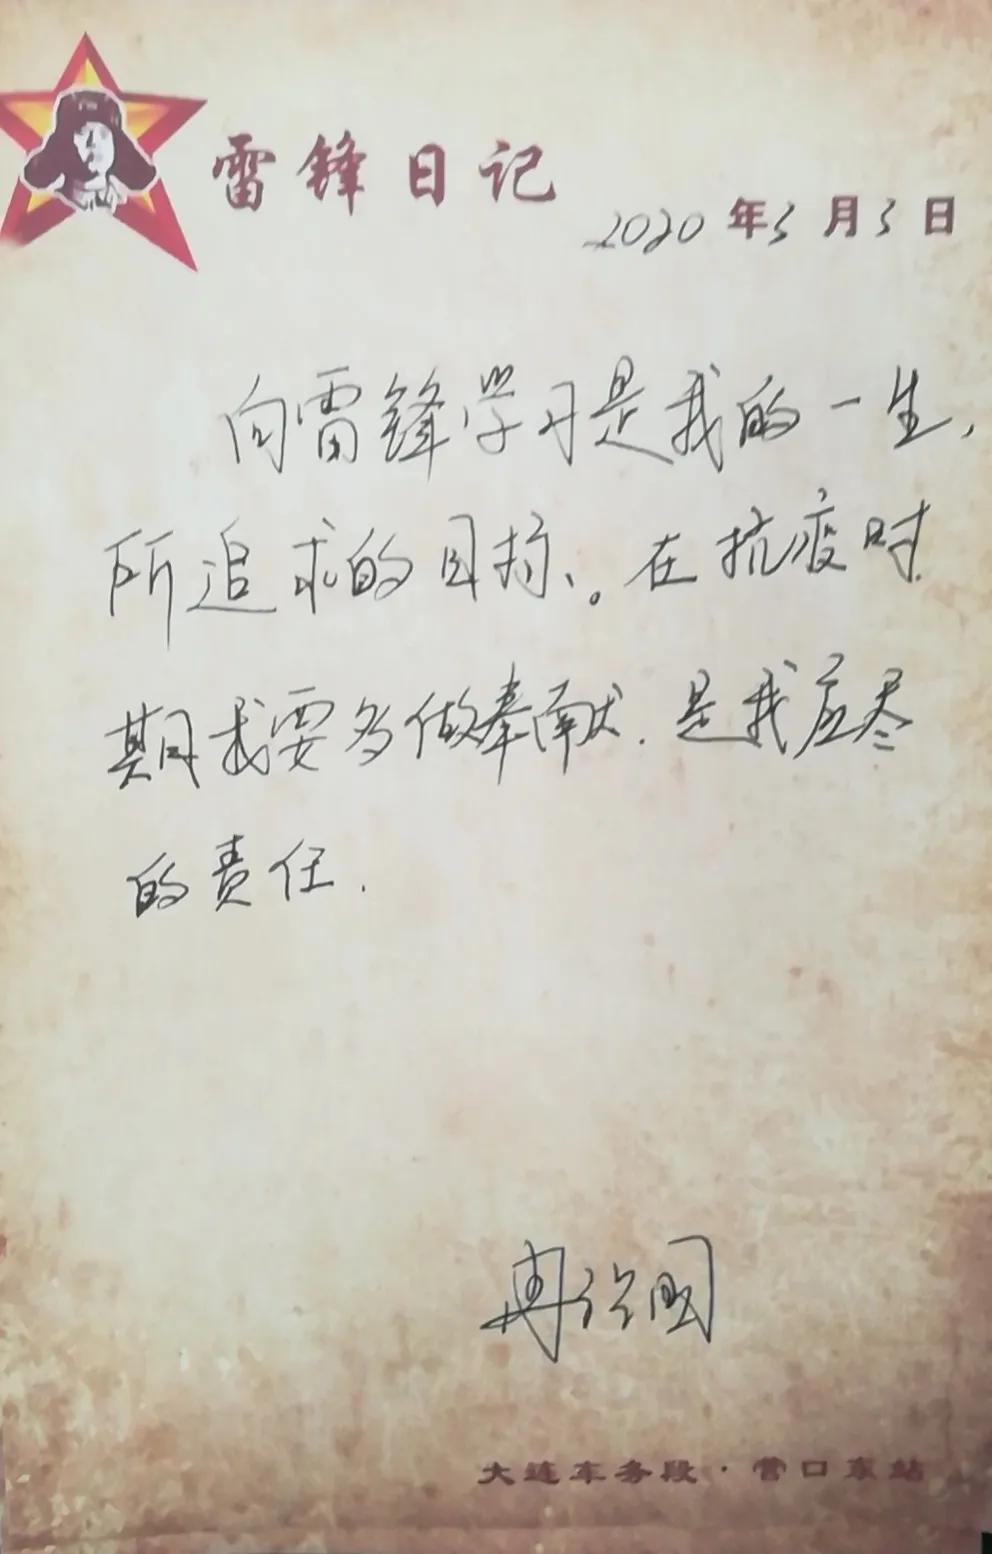 雷锋日记
2020年3月3日
向雷锋学习是我的一生,
所追求的目标、。在抗疫时
期我要多做奉献.是我应尽
的责任.
冉治国
大连车务段·营口东站